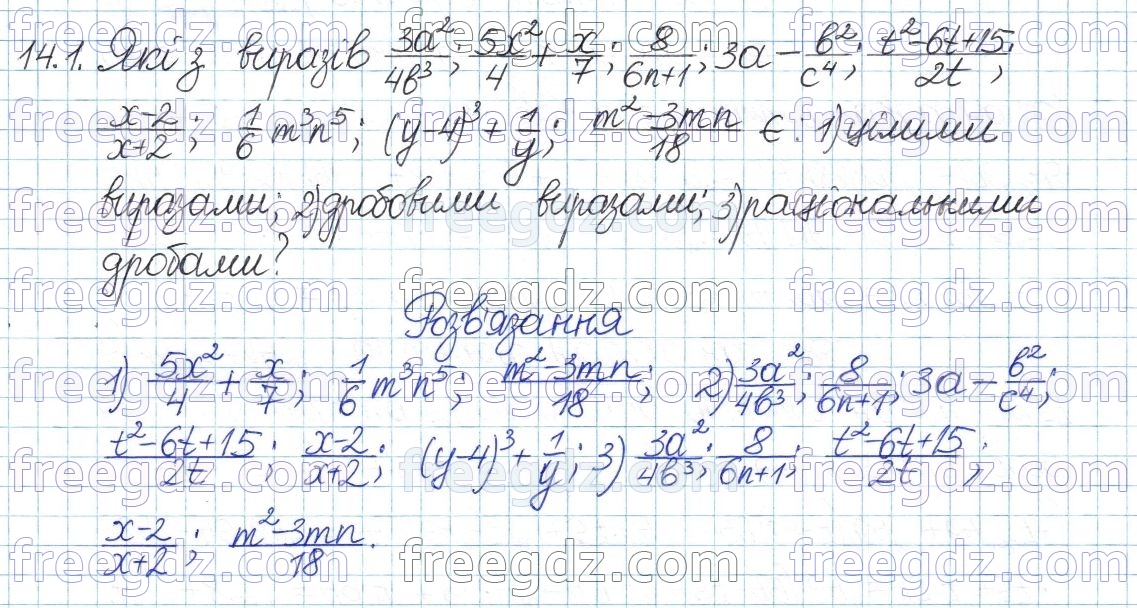 14.1. Які з виразів 3a²/4b³; 5x²/4 + x/7; 8/6n+1; 3a – b²/c⁴; t²–6t+15/2t;
x–2/x+2; 1/6 m³n⁵; (y–4)³ + 1/y; m²–3mn/18 є: 1) цілими
виразами; 2) дробовими виразами; 3) раціональними
дробами?
Розв'язання
1) 5x²/4 + x/7; 1/6 m³n⁵; m²–3mn/18; 2) 3a²/4b³; 8/6n+1; 3a – b²/c⁴;
t²–6t+15/2t; x–2/x+2; (y–4)³ + 1/y; 3) 3a²/4b³; 8/6n+1; t²–6t+15/2t;
x–2/x+2; m²–3mn/18.
freegdz.com